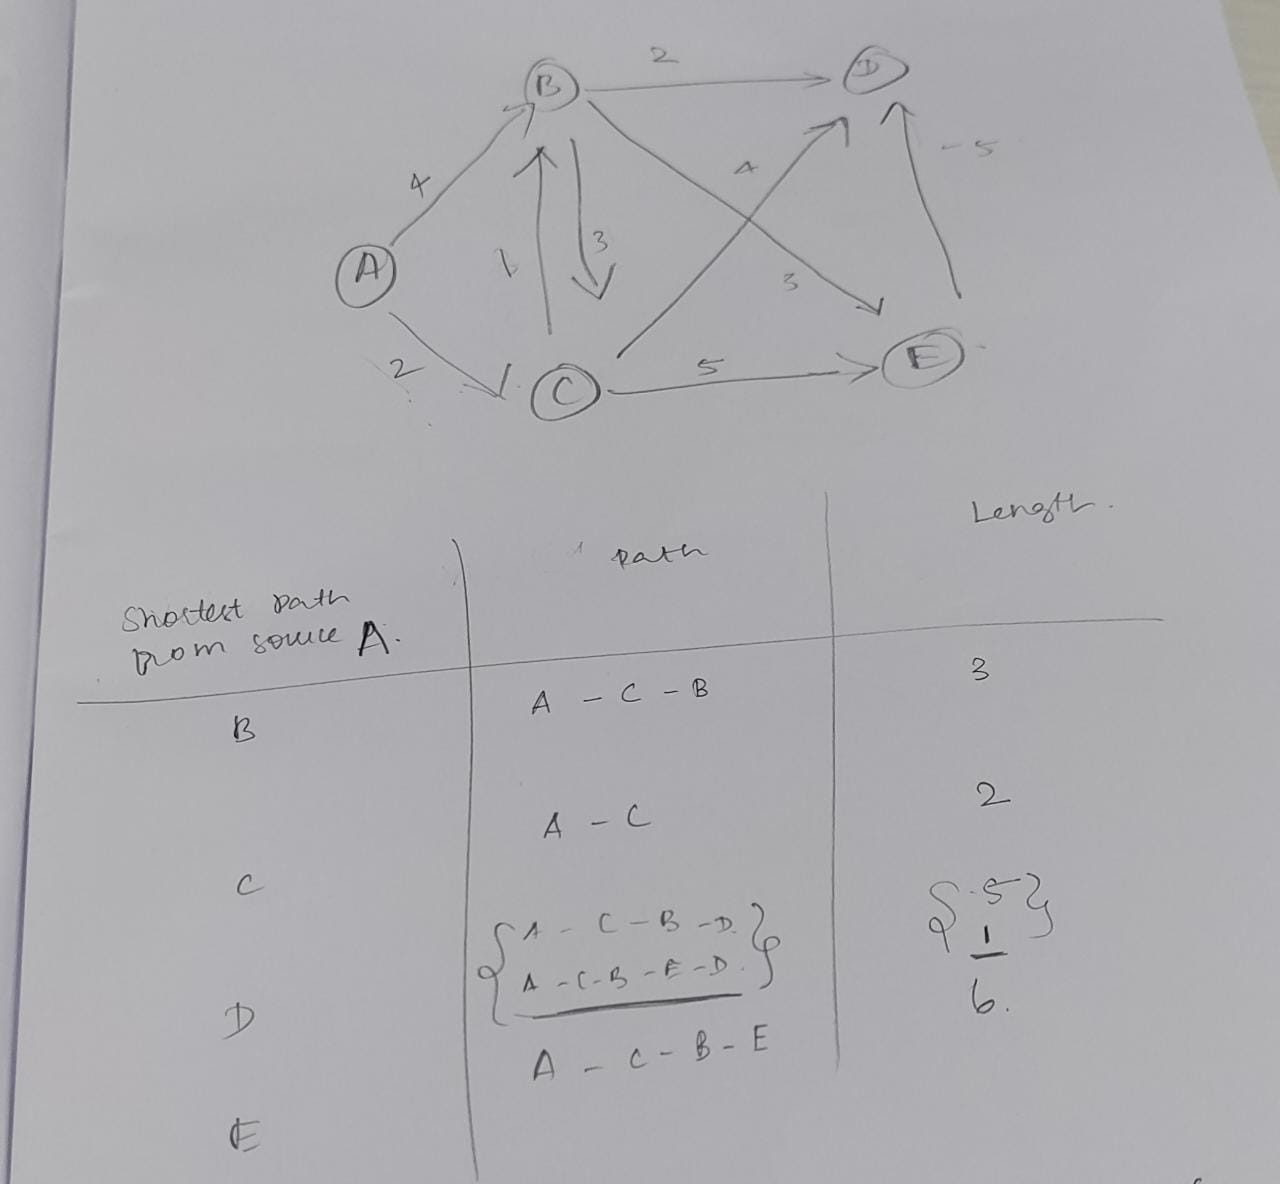 2
B
D
4
4
-5
A
1
3
3
2
C
5
E
Shortest path
from source A.
Path
Length.
B
A - C - B
3
C
A - C
2
D
{ A - C - B - D.
A - C - B - E - D. }
{ 5 }
1
E
A - C - B - E
6.